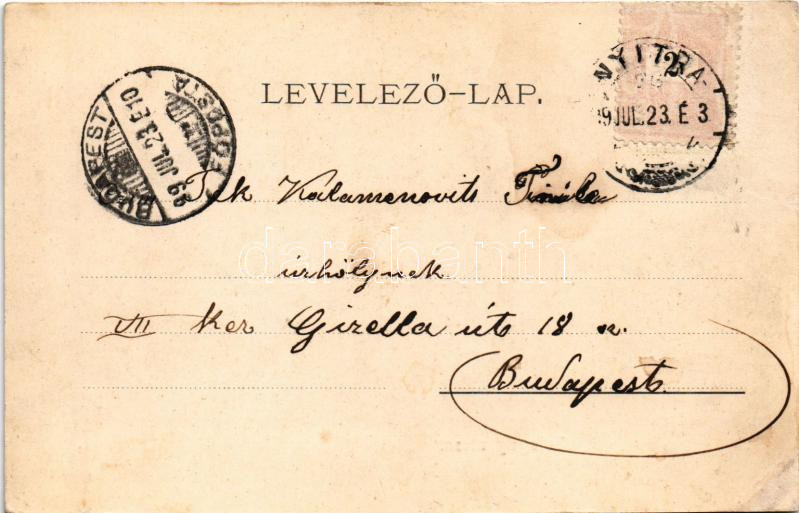 LEVELEZŐ-LAP.
NYITRA
2
9 JUL. 23. É 3
BUDAPEST
FŐPOSTA
99 JUL. 23. E 10
Tek Kalamenovits
úrhölynek
VII ker Gizella út 18 sz.
Budapest.
darabanth